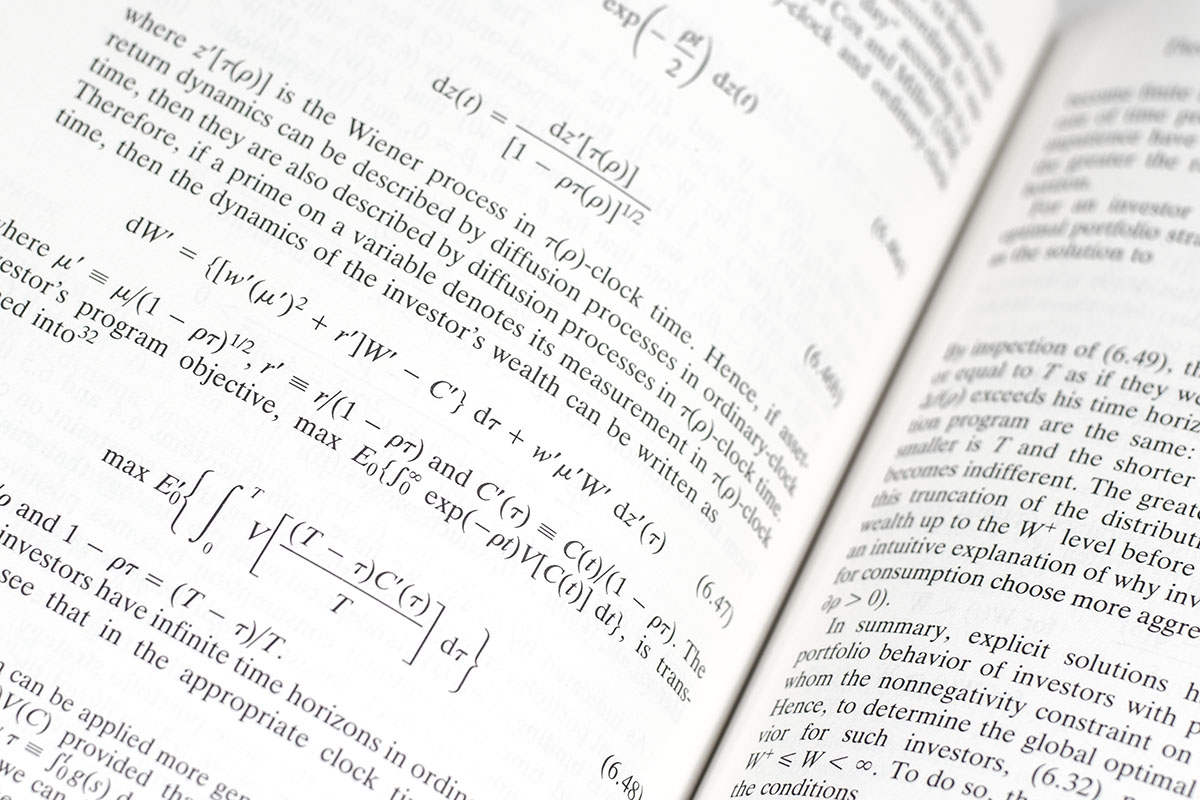 exp(−ρt/2) dz(t)
dz(t) = dz′[τ(ρ)] / [1 − ρτ(ρ)]^1/2
where z′[τ(ρ)] is the Wiener process in τ(ρ)-clock time. Hence, if asset-
return dynamics can be described by diffusion processes in ordinary-clock
time, then they are also described by diffusion processes in τ(ρ)-clock time.
Therefore, if a prime on a variable denotes its measurement in τ(ρ)-clock
time, then the dynamics of the investor's wealth can be written as
(6.46b)
dW′ = {[w′(μ′)² + r′]W′ − C′} dτ + w′μ′W′ dz′(τ)
(6.47)
where μ′ ≡ μ/(1 − ρτ)^1/2, r′ ≡ r/(1 − ρτ) and C′(τ) ≡ C(t)/(1 − ρτ). The
vestor's program objective, max E₀{∫₀^∞ exp(−ρt)V[C(t)] dt}, is trans-
ed into³²
max E′₀{∫₀^T V[(T − τ)C′(τ) / T] dτ}
(6.48)
and 1 − ρτ = (T − τ)/T.
investors have infinite time horizons in ordin
see that in the appropriate clock ti
can be applied more gen
V(C) provided tha
τ ≡ ∫₀^t g(s) d
we can
become finite
the greater the
For an investor
optimal portfolio stra
as the solution to
By inspection of (6.49), th
or equal to T as if they we
exceeds his time horiz
tion program are the same:
smaller is T and the shorter
becomes indifferent. The greate
this truncation of the distributi
wealth up to the W⁺ level before
an intuitive explanation of why inv
for consumption choose more aggre
∂ρ > 0).
In summary, explicit solutions h
portfolio behavior of investors with p
whom the nonnegativity constraint on
Hence, to determine the global optimal
vior for such investors, (6.32)
W⁺ ⩽ W < ∞. To do so, th
the conditions